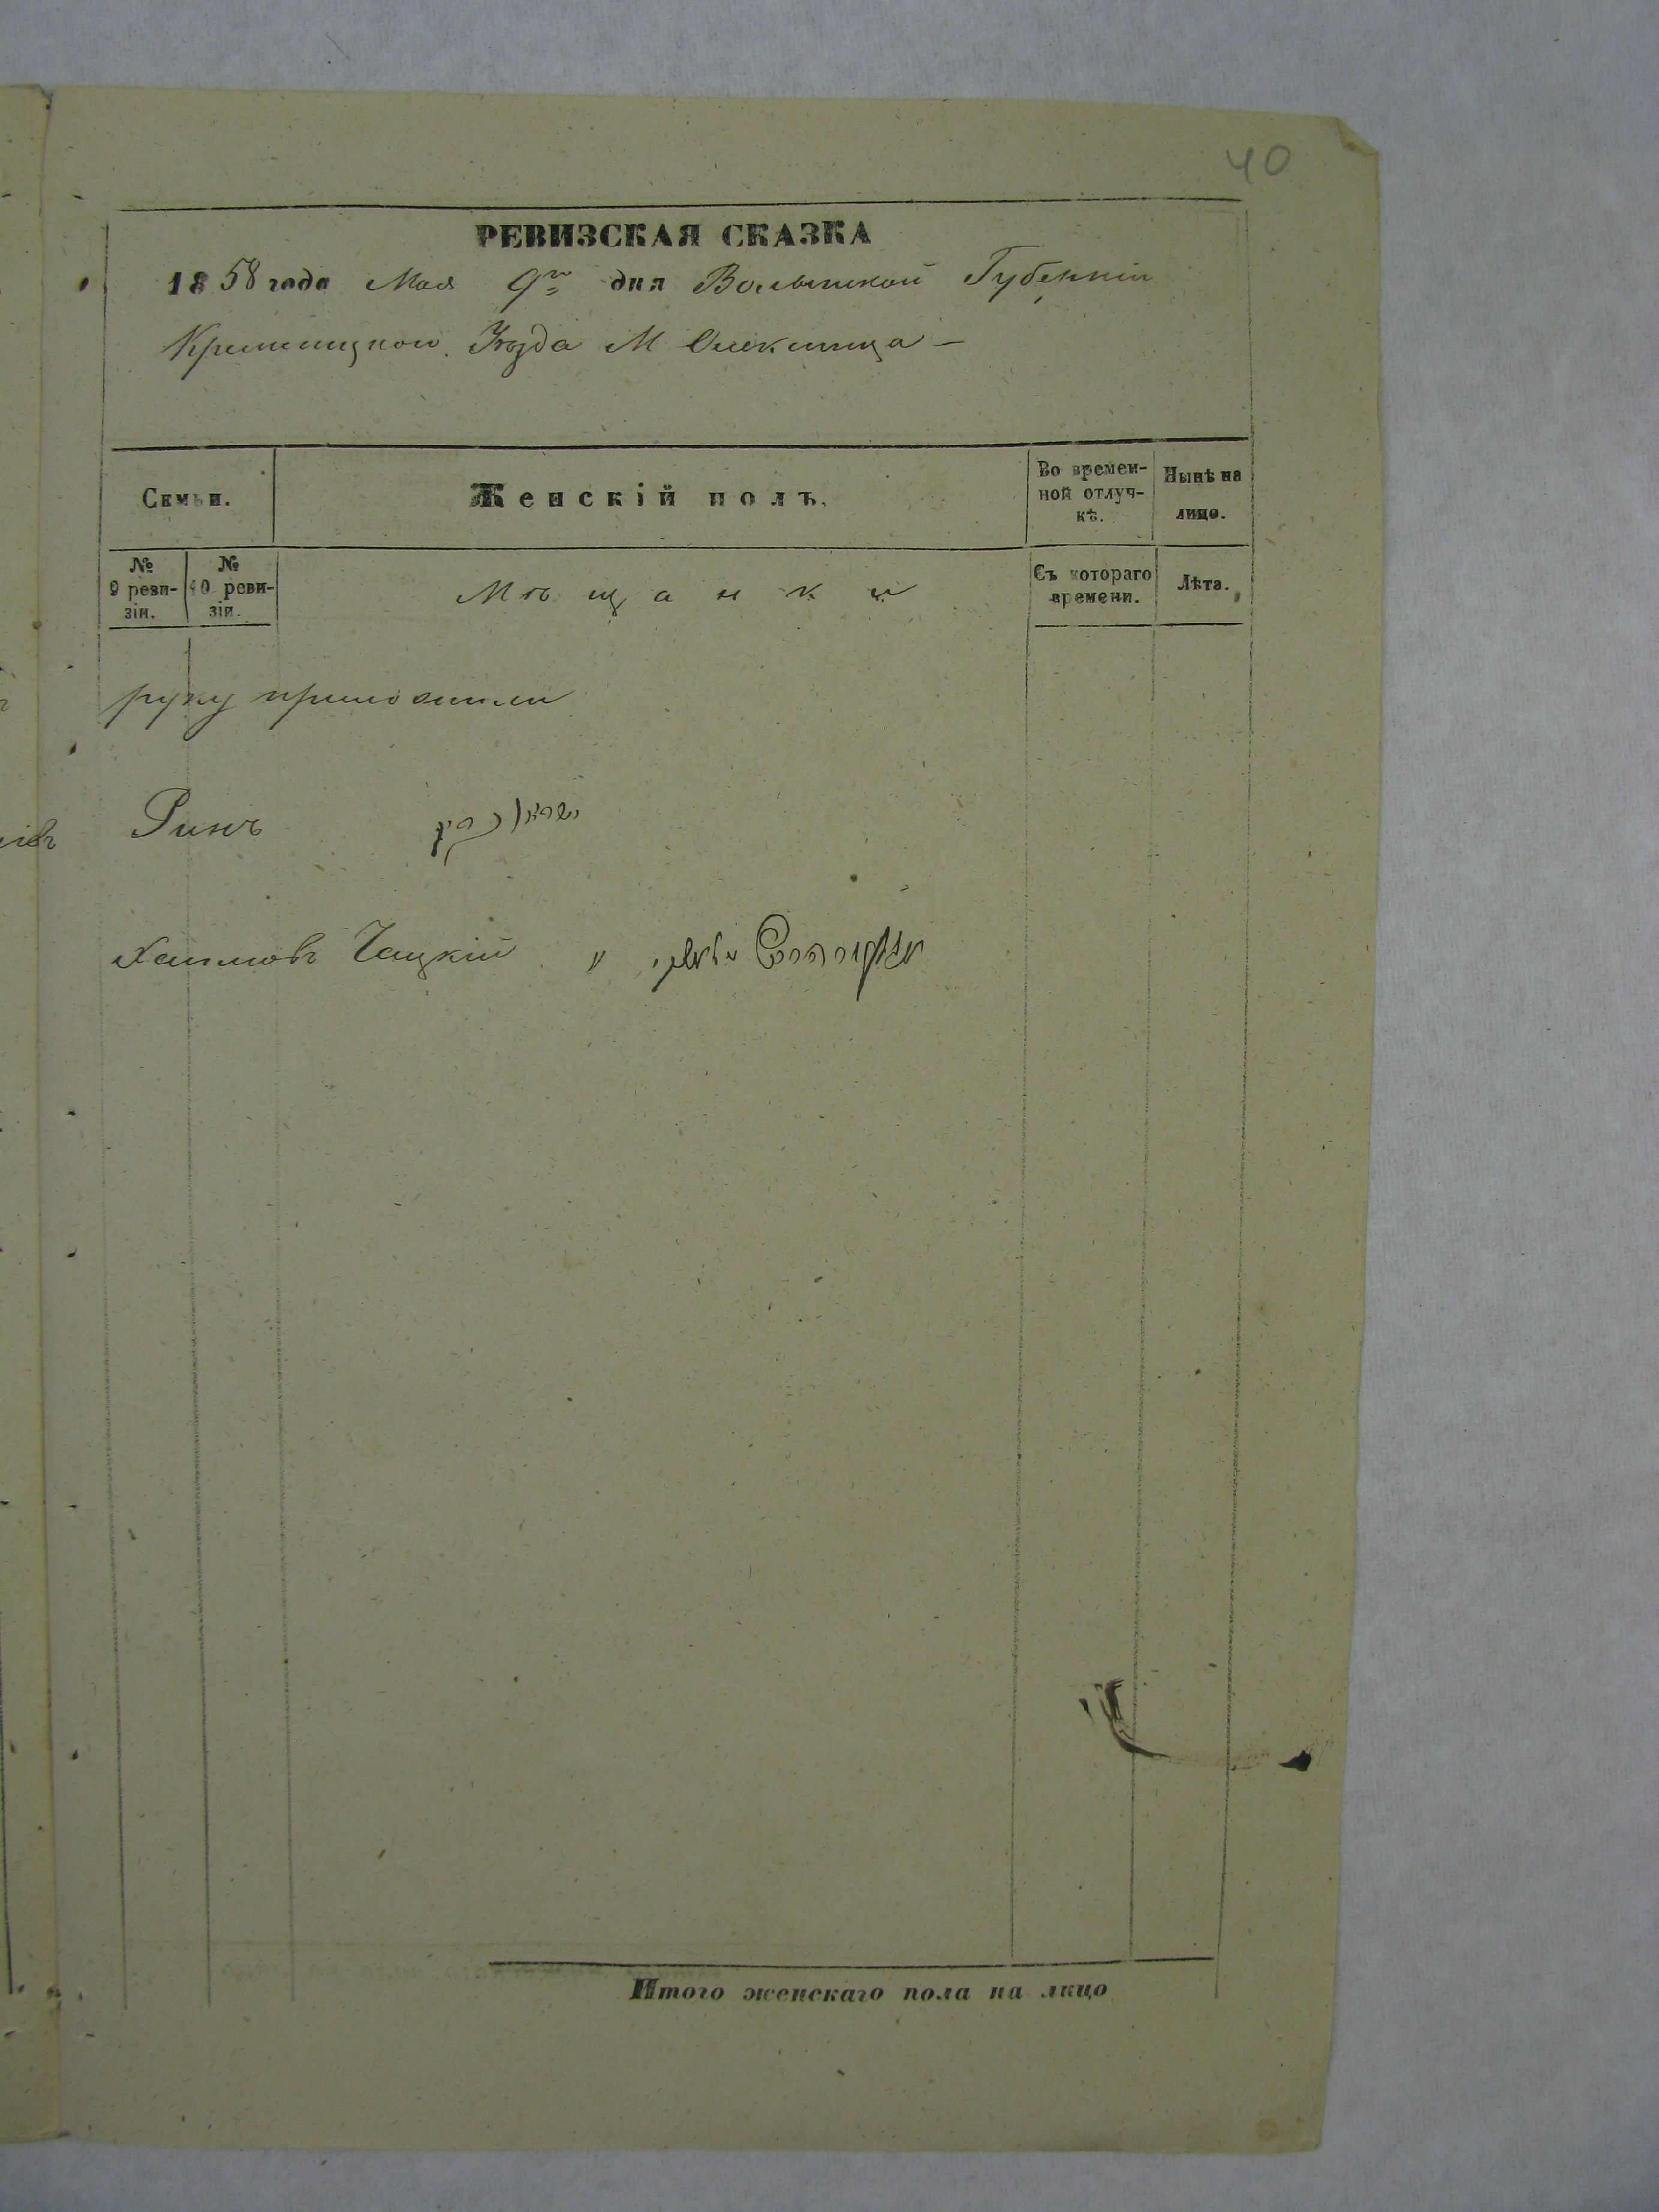 40
РЕВИЗСКАЯ СКАЗКА
1858 года Мая 9го дня Волынской Губерніи
Кременецкого Уѣзда М Олексинца —
Семьи.
Женскій полъ.
Во времен-
ной отлуч-
кѣ.
Нынѣ на
лицо.
№
9 реви-
зіи.
№
10 реви-
зіи.
Мѣщанки
Съ котораго
времени.
Лѣта.
руку приложили
Ринъ
Хаимовъ Чацкій
Итого женскаго пола на лицо